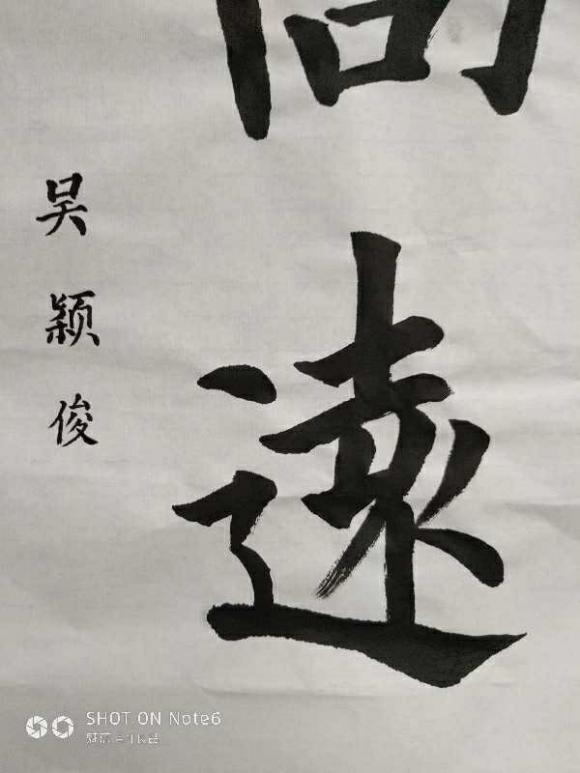 遠
吴颖俊
SHOT ON Note6